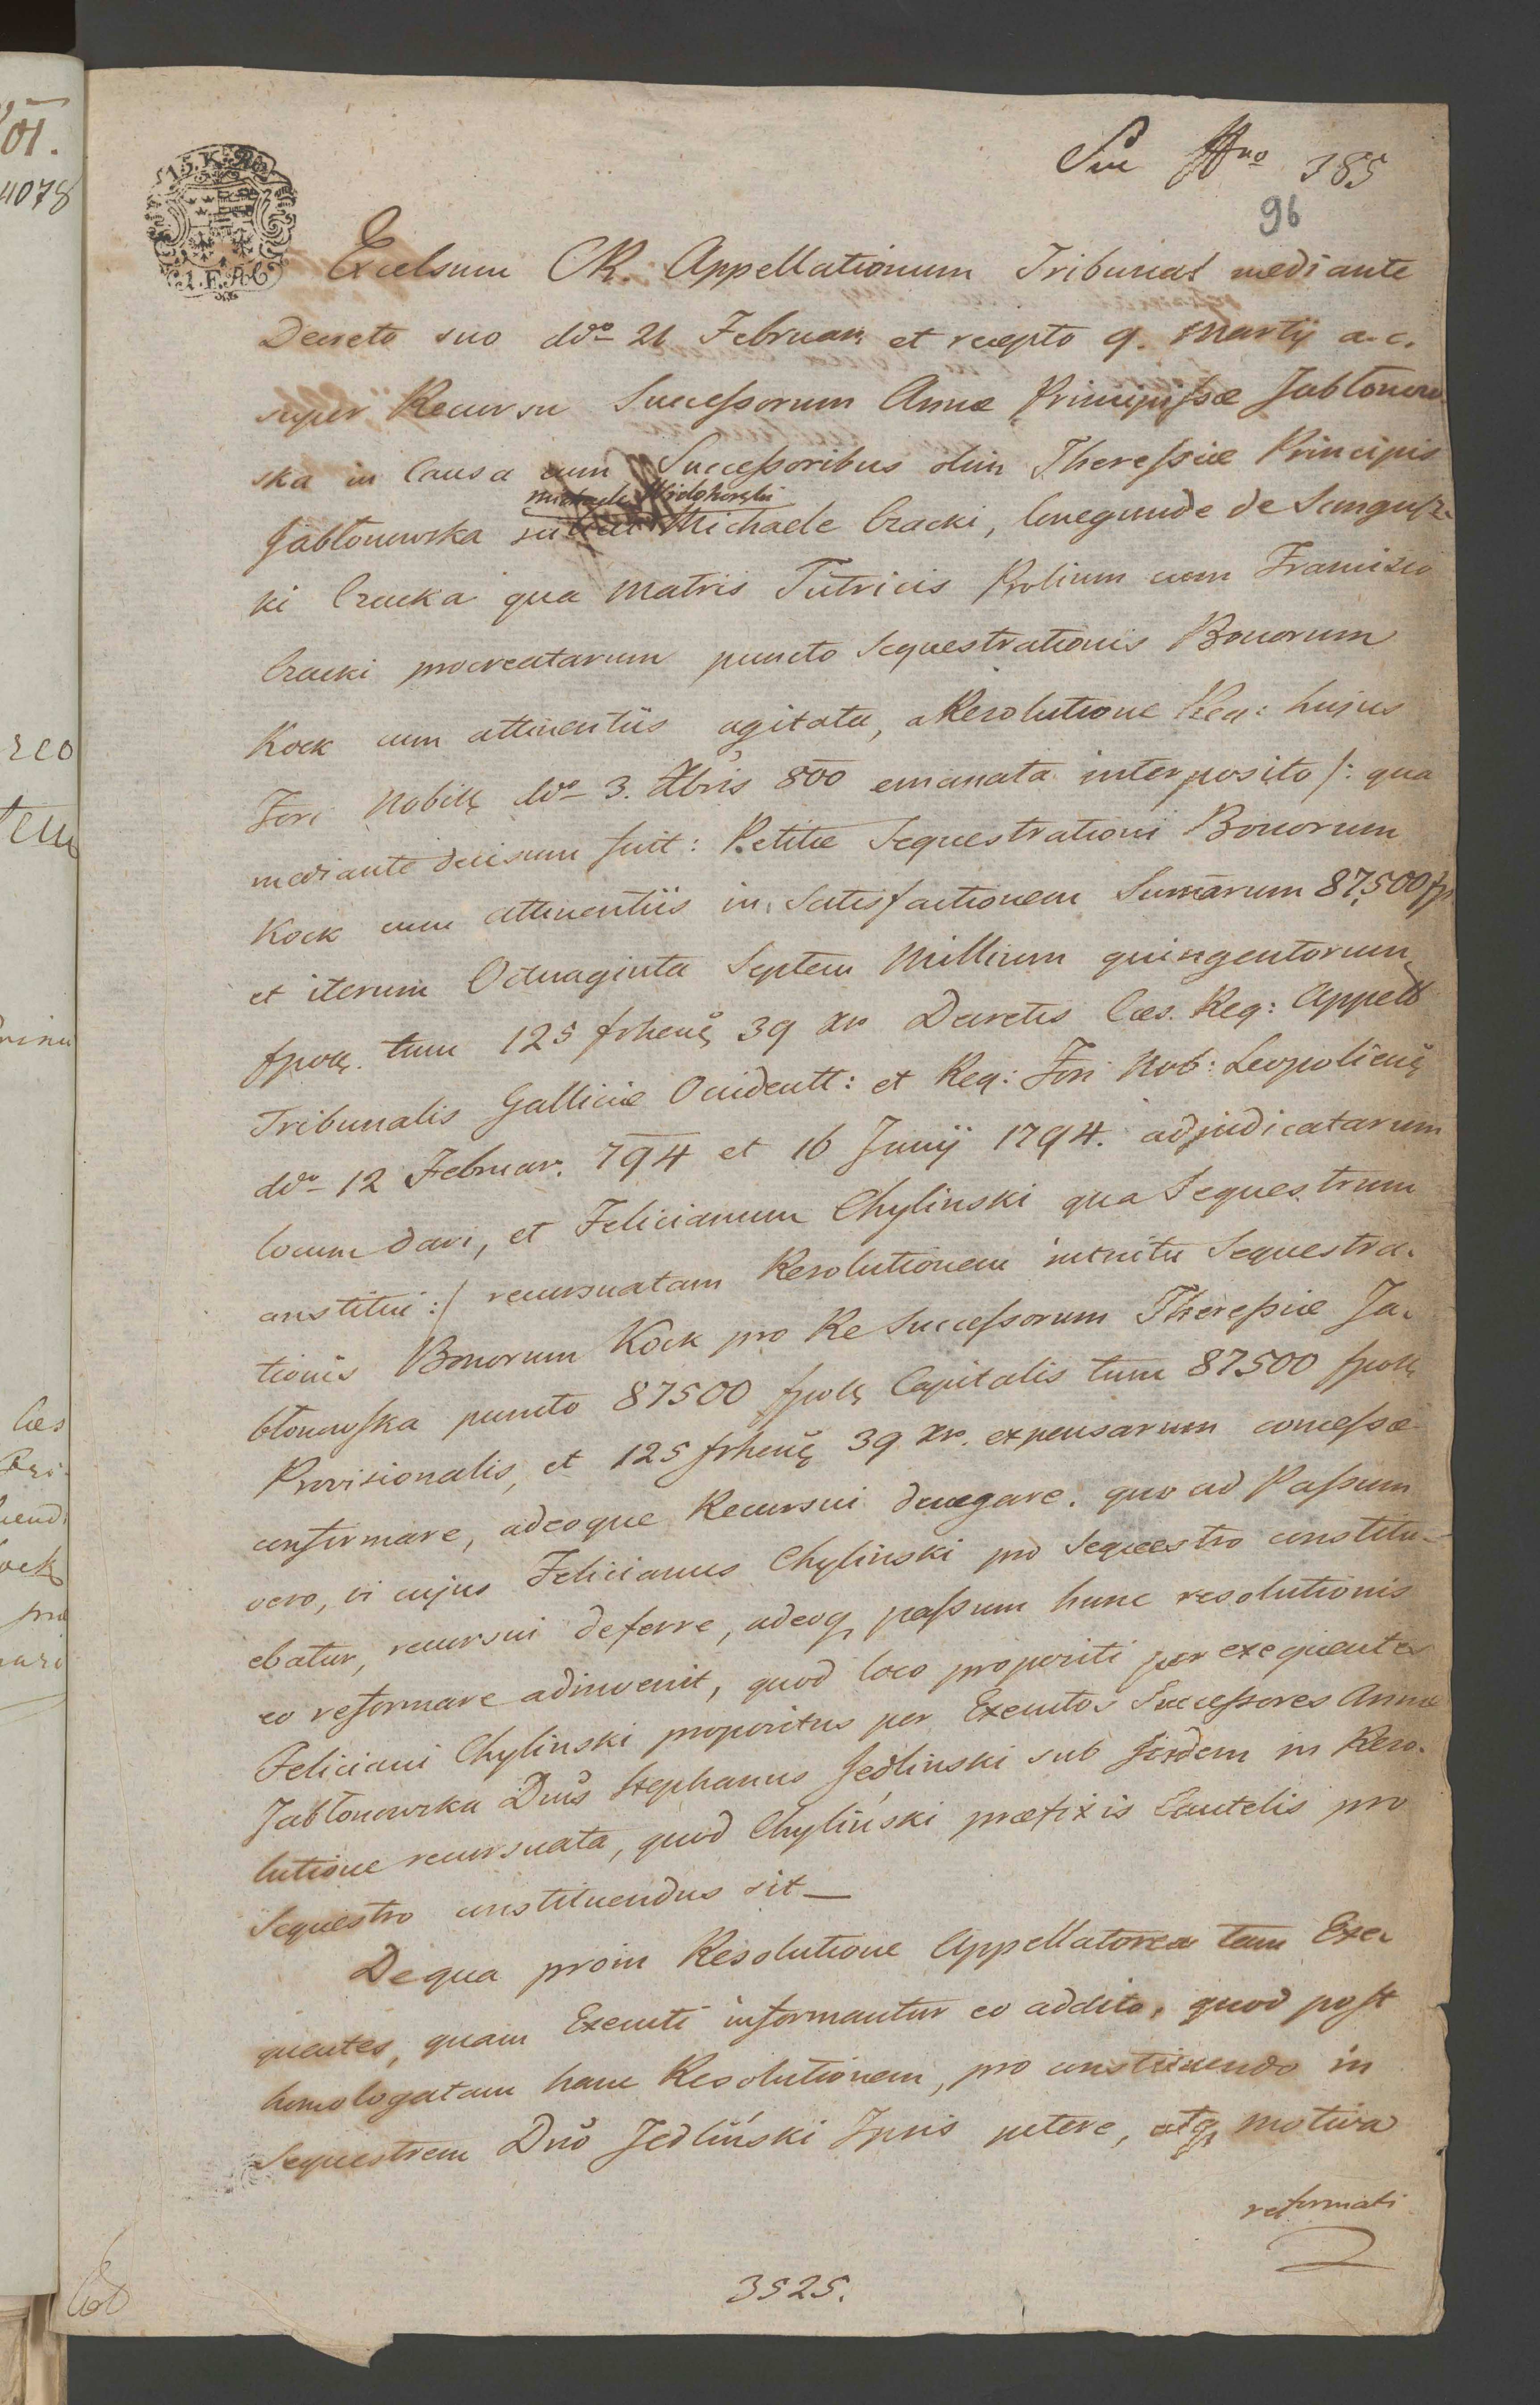 385
96
15. K
Excelsum CR. Appellationum Tribunal mediante
Decreto suo ddo 21 Februar. et recepto 9. Martij a. c.
super Recursu Successorum Annæ Principissæ Jabłonow
ska in Causa cum Successoribus olim Theressiæ Principis
Michaele Czacki, Conegunde de Sangusz-
Jabłonowska
ki Czacka qua Matris Tutricis Prolium cum Francisco
Czacki procreatarum puncto Sequestrationis Bonorum
Kock cum attinentiis agitata, a Resolutione Reg: hujus
Fori Nobilg ddo 3. Xbris 800 emanata interposito /: qua
mediante decisum fuit: Petitæ Sequestrationi Bonorum
Kock cum attinentiis in Satisfactionem Summarum 87,500 fp
et iterum Octuaginta Septem Millium quingentorum
fpolg. tum 125 frheng 39 xr Decretis Cæs. Reg: Appell
Tribunalis Galliciæ Occidentt: et Reg: Fori Nob: Leopolieng
ddo 12 Februar. 794 et 16 Junij 1794. adjudicatarum
locum dari, et Felicianum Chylinski qua Sequestrum
constitui :/ recursuatam Resolutionem intuitu Sequestra-
tionis Bonorum Kock pro Re Successorum Theressiæ Ja-
błonowska puncto 87500 fpolg Capitalis tum 87500 fpolg
Provisionalis, et 125 frheng 39 xr. expensarum concessæ
confirmare, adeoque Recursui denegare. quo ad Passum
vero, vi cujus Felicianus Chylinski pro Sequestro constitu-
ebatur, recursui deferre, adeoq passum hunc resolutionis
eo reformare adinvenit, quod loco propositi per exequentes
Feliciani Chylinski propositus per Executos Successores Annæ
Jabłonowska Dnus Stephanus Jedlinski sub iisdem in Reso-
lutione recursuata, quod Chyliński præfixis Cautelis pro
Sequestro constituendus sit_
De qua proin Resolutione Appellatorea tam Exe-
quentes, quam Executi informantur eo addito, quod post
homologatam hanc Resolutionem, pro constituendo in
Sequestrem Dno Jedliński Ipsis petere, atq motiva
reformati
3525.